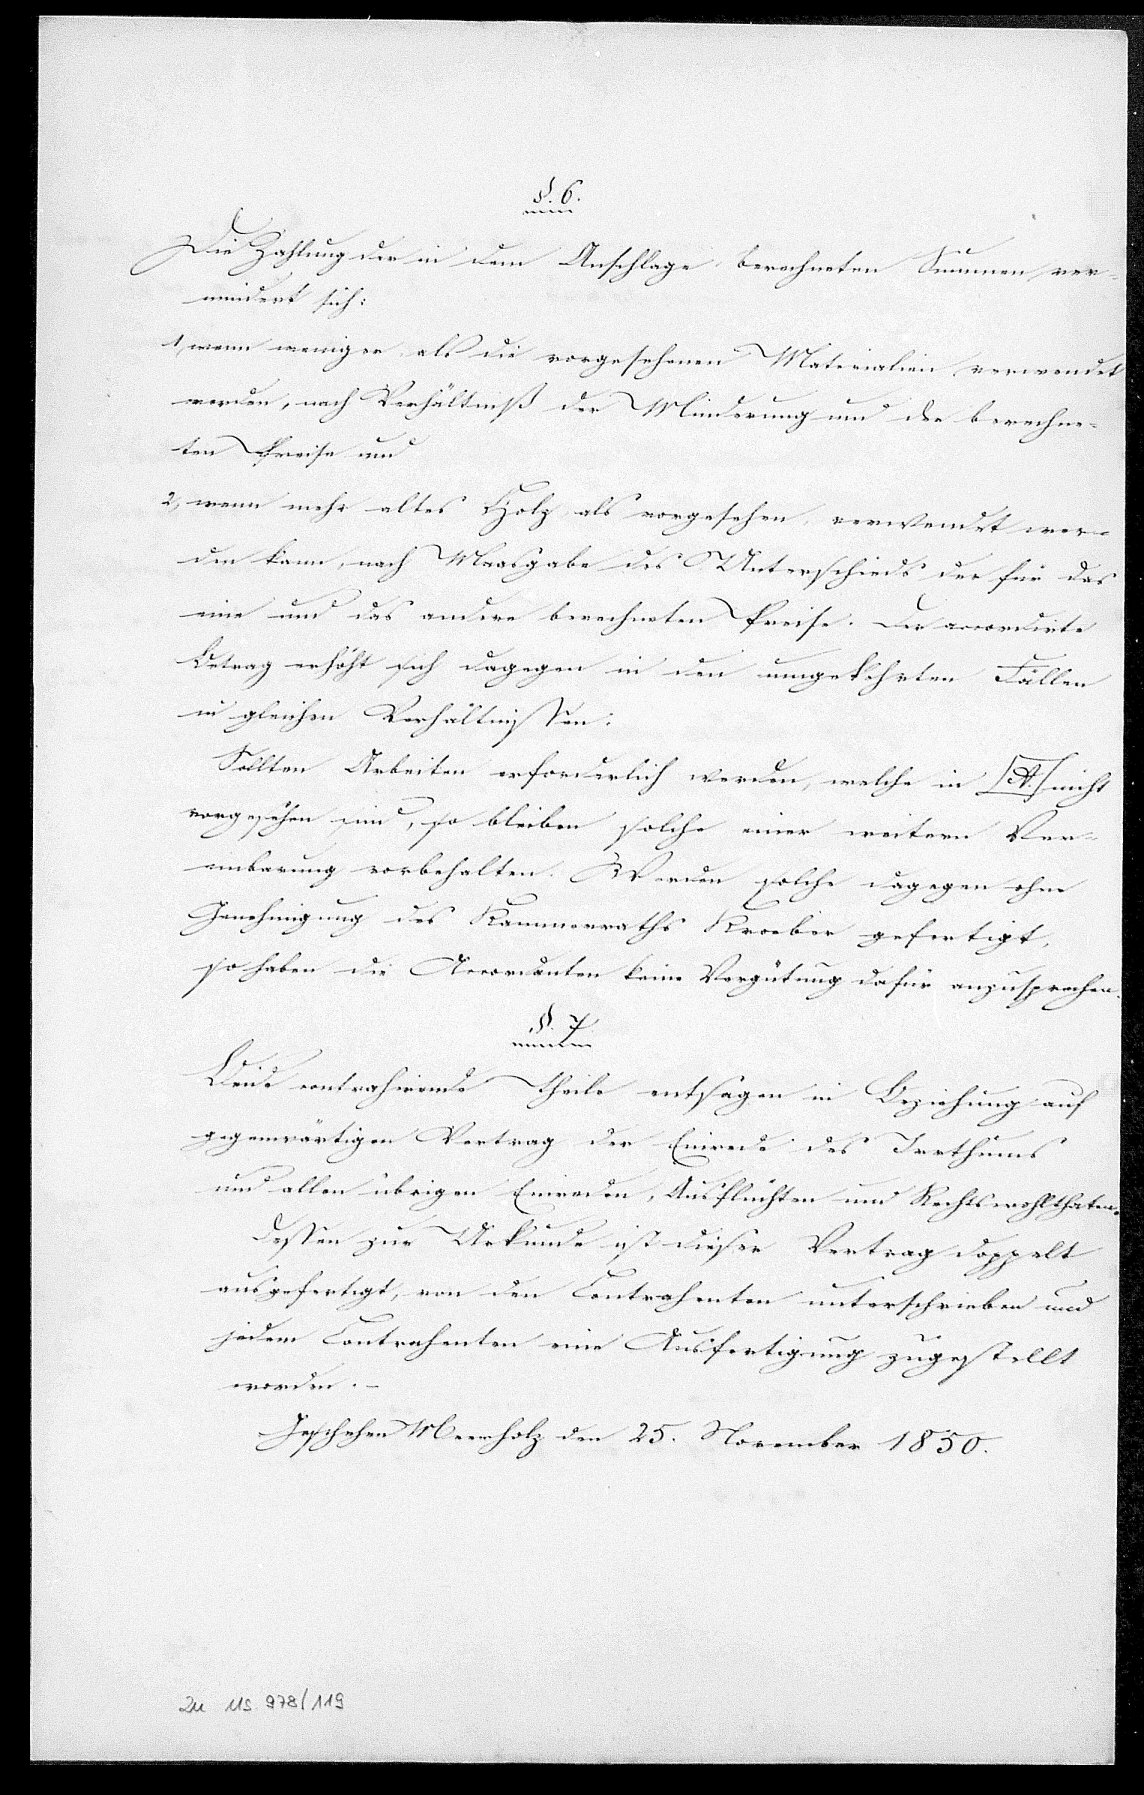 §. 6.
Die Zahlung der in dem Anschlage berechneten Summen ver-
mindert sich:
1, wenn weniger als die vorgesehenen Materialien verwendet
werden, nach Verhältniß der Minderung und der berechne-
ten Preise und
2, wenn mehr altes Holz als vorgesehen, verwendet wer-
den kann, nach Maasgabe des Unterschieds der für das
eine und das andere berechneten Preise. Der accordirte
Betrag erhöht sich dagegen in den umgekehrten Fällen
in gleichen Verhältnissen.
Sollten Arbeiten erforderlich werden, welche in [A.] nicht
vorgesehen sind, so bleiben solche einer weitern Ver-
einbarung vorbehalten. Werden solche dagegen ohne
Genehmigung des Kammerraths Kroeber gefertigt,
so haben die Accordanten keine Vergütung dafür anzusprechen.
§. 7
Beide contrahirende Theile entsagen in Beziehung auf
gegenwärtigen Vertrag der Einrede des Irrthums
und allen übrigen Einreden, Ausflüchten und Rechtswohlthaten.
Dessen zur Urkunde ist dieser Vertrag doppelt
ausgefertigt, von den Contrahenten unterschrieben und
jedem Contrahenten eine Ausfertigung zugestellt
worden. –
Geschehen Meerholz den 25. November 1850.
Zu Us. 978/119